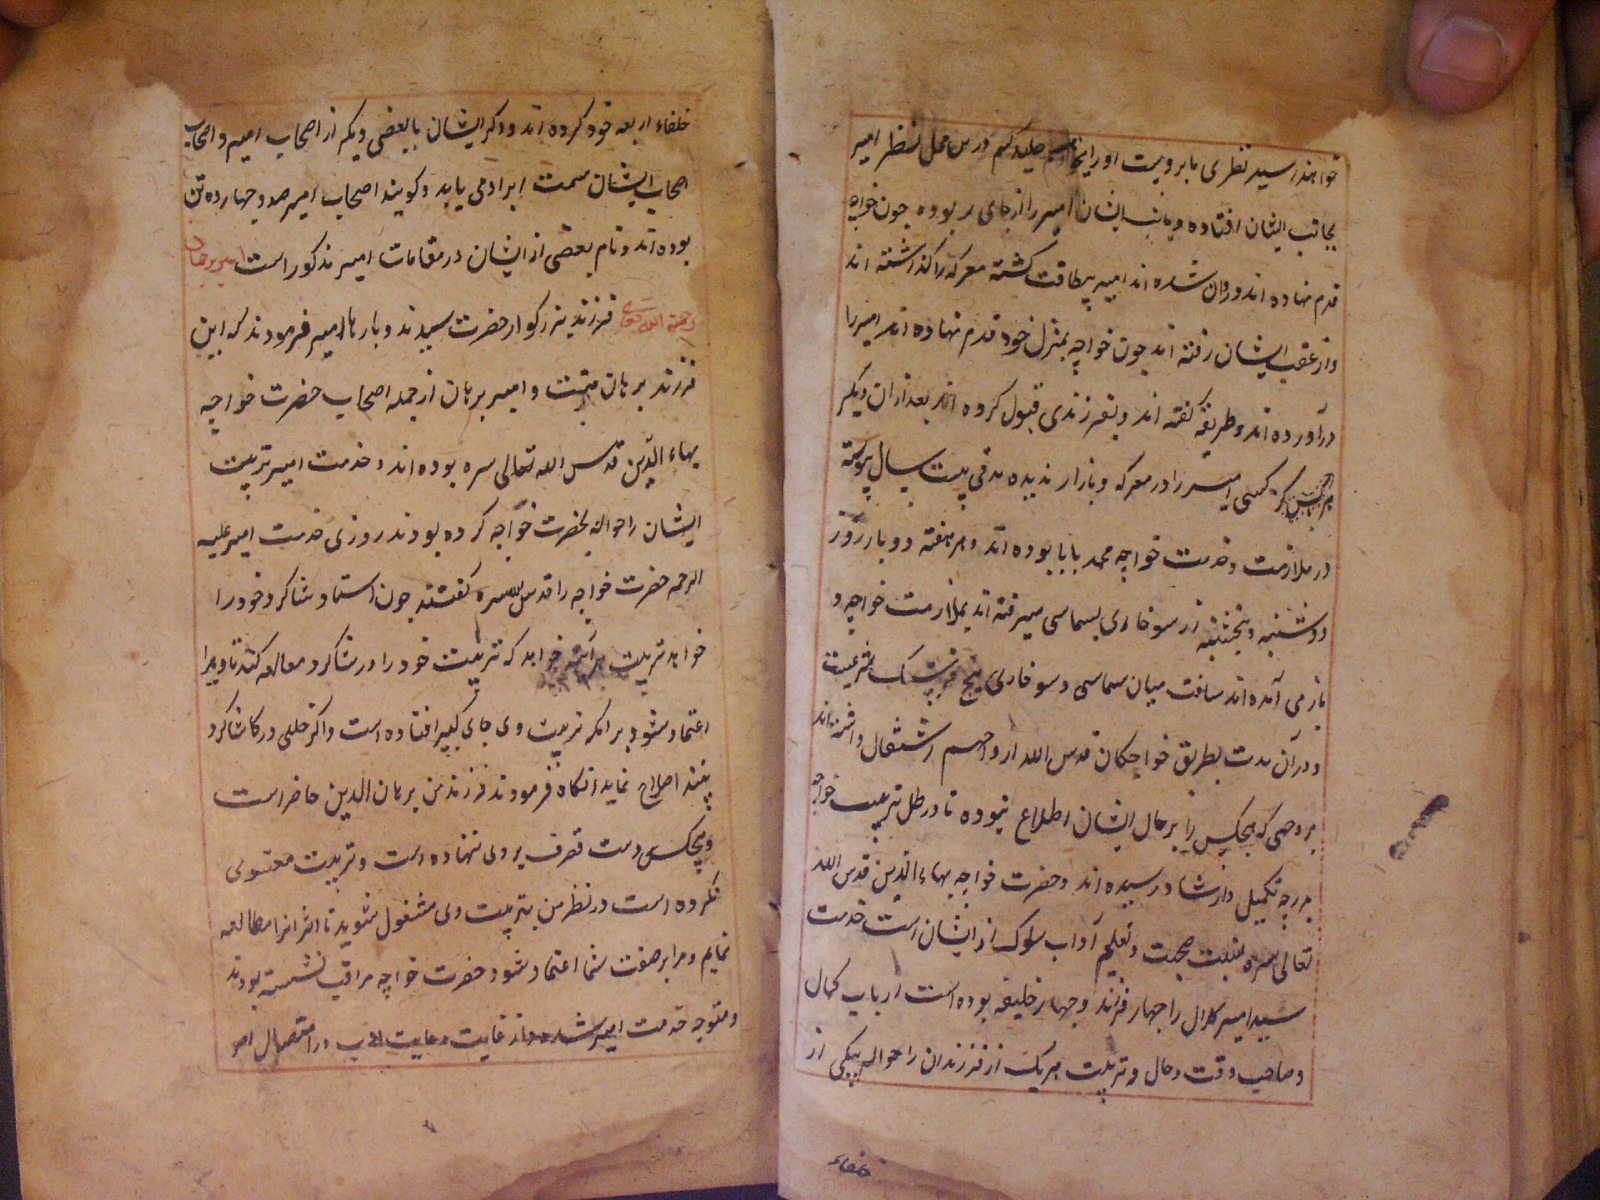 خواهند رسید نظری بابرویست اورا صید کنیم درین محل نظر امیر
بجانب ایشان افتاده و جاذبه ایشان امیر را از جای بر بوده چون خواجه
قدم نهاده اند و روان شده اند امیر بیطاقت کشته معرکه را کذاشته اند
و از عقب ایشان رفته اند چون خواجه بمنزل خود قدم نهاده اند امیر را
درآورده اند و طریقه کفته اند و بفرزندی قبول کرده اند بعد از ان دیکر
هرکز کسی امیر را در معرکه و بازار ندیده مدتی بیست سال پیوسته
در ملازمت و خدمت خواجه محمد بابا بوده اند و هر هفته دو بار روز
دوشنبه و پنجشنبه از سوخاری بسماسی میرفته اند بملازمت خواجه و
باز می آمده اند مسافت میان سماسی و سوخاری پنج فرسنک شرعیست
و در آن مدت بطریق خواجکان قدس الله ارواحهم اشتغال داشته اند
بروجهی که هیچکس را بر حال ایشان اطلاع نبوده تا در ظل تربیت خواجه
بدرجه تکمیل و ارشاد رسیده اند و حضرت خواجه بهاء الدین قدس الله
تعالی سره نسبت صحبت و تعلیم آداب سلوک از ایشان است خدمت
سید امیر کلال را چهار فرزند و چهار خلیفه بوده است ارباب کمال
و صاحب وقت و حال و تربیت هر یک از فرزندان را حواله بیکی از
خلفاء
خلفاء اربعه خود کرده اند و ذکر ایشان با بعضی دیکر از اصحاب امیر و اصحاب
اصحاب ایشان سمت ایراد می یابد و کویند اصحاب امیر صد و چهارده تن
بوده اند و نام بعضی از ایشان در مقامات امیر مذکور است امیر برهان
رحمة الله تعالی فرزند بزرکوار حضرت سیدند و بارها امیر فرمودند که این
فرزند برهان منست و امیر برهان از جمله اصحاب حضرت خواجه
بهاء الدین قدس الله تعالی سره بوده اند و خدمت امیر تربیت
ایشان را حواله بحضرت خواجه کرده بودند روزی خدمت امیر علیه
الرحمه حضرت خواجه را قدس سره کفتند چون استاد شاکرد خود را
خواهد تربیت هر آینه خواهد که تربیت خود را در شاکرد مطالعه کند تا ویرا
اعتماد شود بر انکه تربیت وی جای کیر افتاده است و اکر خللی در کار شاکرد
بیند اصلاح نماید انکاه فرمودند فرزند من برهان الدین حاضر است
و هیچکس دست تصرف بر وی ننهاده است و تربیت معنوی
نکرده است در نظر من بتربیت وی مشغول شوید تا اثر انرا مطالعه
نمایم و مرا بر صفت شما اعتماد شود حضرت خواجه مراقب نشسته بودند
و متوجه خدمت امیر شده و از غایت رعایت ادب در امتثال امر